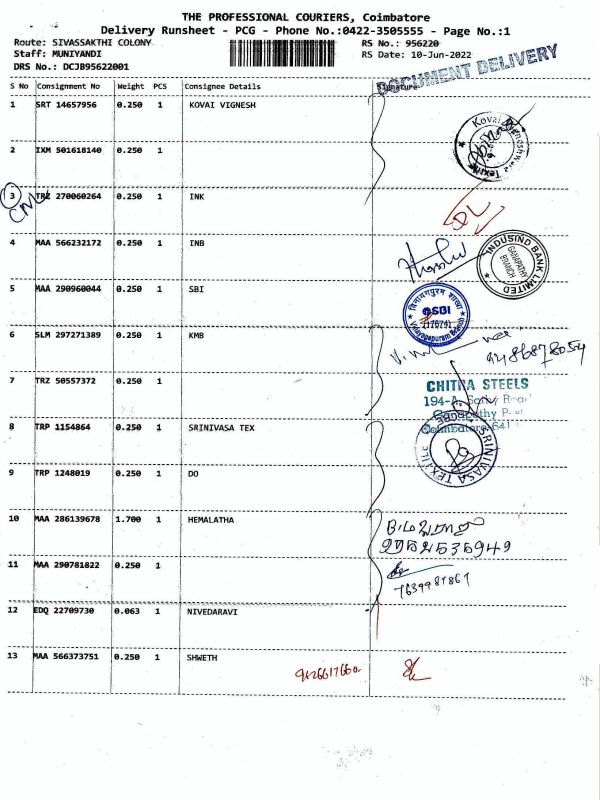 THE PROFESSIONAL COURIERS, Coimbatore
Delivery Runsheet - PCG - Phone No.:0422-3505555 - Page No.:1
Route: SIVASSAKTHI COLONY RS No.: 956220
Staff: MUNIYANDI RS Date: 10-Jun-2022
DRS No.: DCJB95622001
DOCUMENT DELIVERY
S No Consignment No Weight PCS Consignee Details Signature
1 SRT 14657956 0.250 1 KOVAI VIGNESH
2 IXM 501618140 0.250 1
3 TRZ 270060264 0.250 1 INK
4 MAA 566232172 0.250 1 INB
INDUSIND BANK LIMITED
GANAPATHY
BRANCH
5 MAA 290960044 0.250 1 SBI
विनायगपुरम शाखा
SBI
(17674)
Vinayagapuram Branch
6 SLM 297271389 0.250 1 KMB
9486878054
7 TRZ 50557372 0.250 1
CHITRA STEELS
194-A,
Coimbatore 641
8 TRP 1154864 0.250 1 SRINIVASA TEX
SRINIVASA TEXTILE
9 TRP 1248019 0.250 1 DO
10 MAA 286139678 1.700 1 HEMALATHA
11 MAA 290781822 0.250 1
12 EDQ 22709730 0.063 1 NIVEDARAVI
13 MAA 566373751 0.250 1 SHWETH